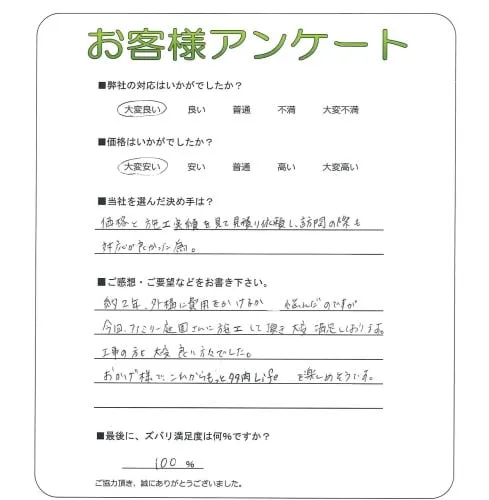 お客様アンケート
■弊社の対応はいかがでしたか？
大変良い 良い 普通 不満 大変不満
■価格はいかがでしたか？
大変安い 安い 普通 高い 大変高い
■当社を選んだ決め手は？
価格と施工実績を見て見積り依頼し、訪問の際も
対応が良かった為。
■ご感想・ご要望などをお書き下さい。
約2年、外構に費用をかけるか 悩んだのですが
今回、ファミリー庭園さんに施工して頂き 大変 満足しております。
工事の方も 大変 良い方たちでした。
おかげ様で、これからもっと多肉Life を楽しめそうです。
■最後に、ズバリ満足度は何%ですか？
100 %
ご協力頂き、誠にありがとうございました。